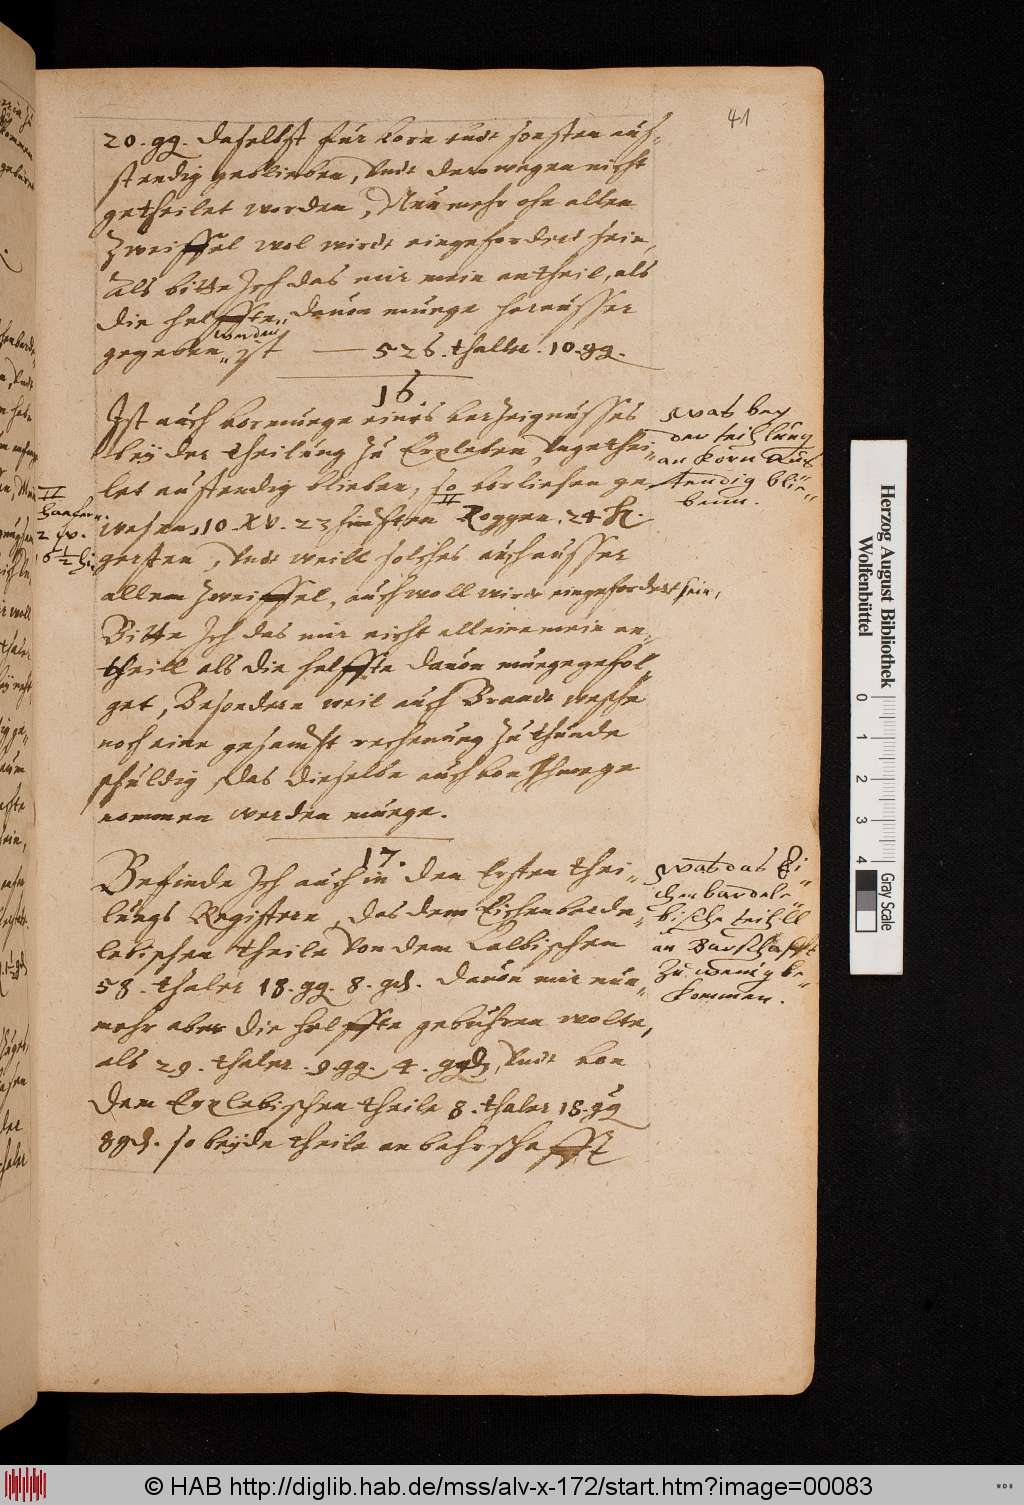 41
20. gg. daselbst fur korn vndt sonsten auß-
stendig geblieben, Vndt derowegen nicht
getheilet worden, Nunmehr ohn allen
Zweiffel wol wirdt eingefordert sein,
Als bitte Ich das mir mein antheil, als
die helffte, dauon muege heraußer
gegeben werden
ist — 526. thaller. 10. gg.
16
Ist auch vormuege eines verzeignusses
bey der theilung zu Erxleben, Vngethei-
let austendig blieben, so vorliehen ge-
wesen, 10. XV. 23 himpten Roggen, 24 H.
gersten, Vndt weill solches auch ausser
allem Zweiffel, auch woll wirdt eingefordert sein,
Bitte Ich das mir nicht alleine mein an-
theill als die helffte dauon muege gefol-
get, Besondern weil auch Brandt
noch eine gesambt rechenung zu thunde
schuldig, das dieselbe auch von Ihme ge
nommen werden muege.
Was bey
der teihlung
an Korn Aus
stendig blie-
benn.
II
Haacern.
2 W.
6 1/2 hi
17.
Befinde Ich auch in den Ersten thei-
lungs Registern, das dem Eichenbarde-
lebischen theile Von dem Calbischen
58. thaler 18. gg. 8. gd. dauon mir nun-
mehr aber die helffte gebuhren wolte,
als 29. thaler. 9. gg. 4. ggd, Vndt von
dem Erxlebischen theile 8. thaler 18. gg
8 gd. so beyde theile an bahrschafft
Was das Ei-
chenbardele-
bische teihll
an Barschafft
zu wenig be-
kommen.
Herzog August Bibliothek
Wolfenbüttel
0 1 2 3 4
Gray Scale
© HAB http://diglib.hab.de/mss/alv-x-172/start.htm?image=00083